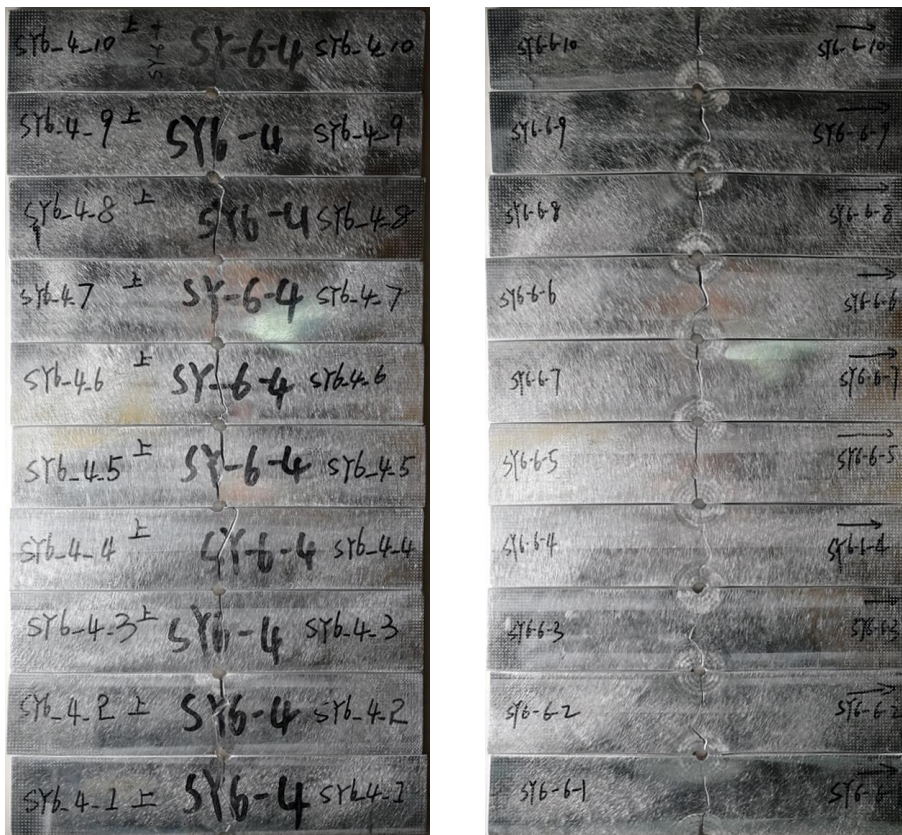 SY6-4-10 上 SY-6-4 SY6-4-10
SY6-4-9 上 SY6-4 SY6-4-9
SY6-4-8 上 SY6-4 SY6-4-8
SY6-4-7 上 SY-6-4 SY6-4-7
SY6-4-6 上 SY-6-4 SY6-4-6
SY6-4-5 上 SY-6-4 SY6-4-5
SY6-4-4 上 SY-6-4 SY6-4-4
SY6-4-3 上 SY6-4 SY6-4-3
SY6-4-2 上 SY6-4 SY6-4-2
SY6-4-1 上 SY6-4 SY6-4-1
SY6-6-10 SY6-6-10
SY6-6-9 SY6-6-9
SY6-6-8 SY6-6-8
SY6-6-6 SY6-6-6
SY6-6-7 SY6-6-7
SY6-6-5 SY6-6-5
SY6-6-4 SY6-6-4
SY6-6-3 SY6-6-3
SY6-6-2 SY6-6-2
SY6-6-1 SY6-6-